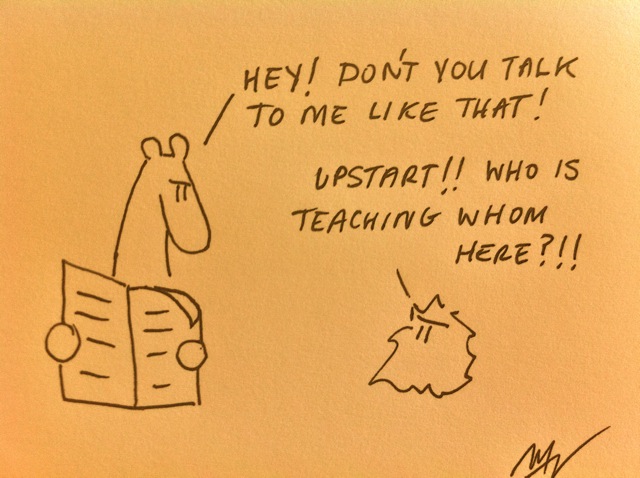 HEY! DON'T YOU TALK
TO ME LIKE THAT!
UPSTART!! WHO IS
TEACHING WHOM
HERE?!!